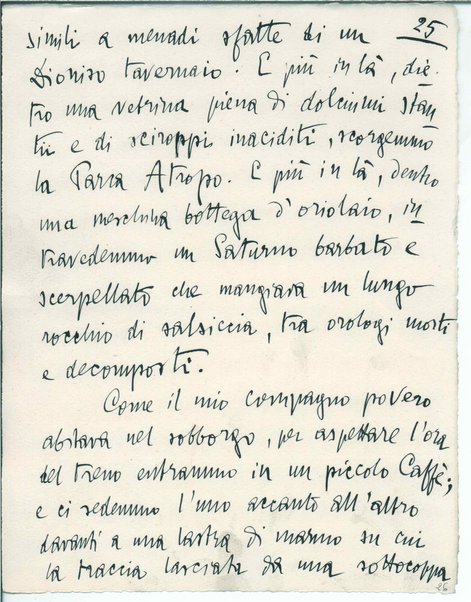 25
simili a menadi sfatte di un
Dioniso tavernaio. E più in là, die-
tro una vetrina piena di dolciumi stan-
tii e di sciroppi inaciditi, scorgemmo
la Parca Atropo. E più in là, dentro
una meschina bottega d'oriolaio, in-
travedemmo un Saturno barbato e
scerpellato che mangiava un lungo
rocchio di salsiccia, tra orologi morti
e decomposti.
Come il mio compagno povero
abitava nel sobborgo, per aspettare l'ora
del treno entrammo in un piccolo Caffè;
e ci sedemmo l'uno accanto all'altro
davanti a una lastra di marmo su cui
la traccia lasciata da una sottocoppa
26